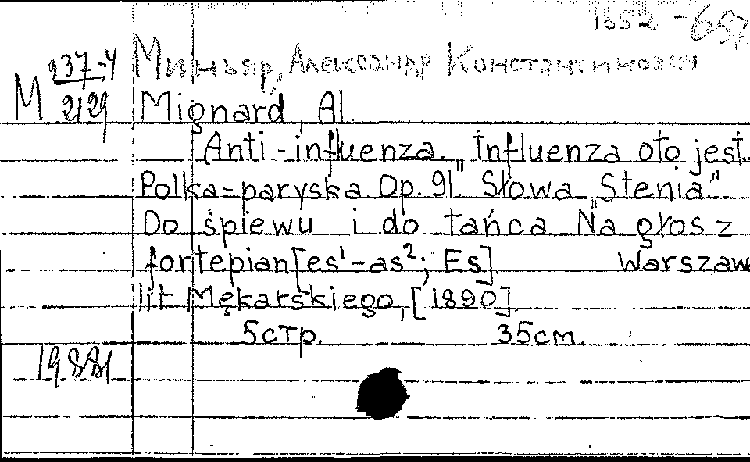 1652-657
Миньяр, Александр Константинович
М 237-4
2129
Mignard Al.
Anti-influenza. "Influenza oto jest"
Polka-paryska Op. 91 Słowa "Stenia"
Do śpiewu i do tańca Na głos z
fortepian [es¹-as²; Es] Warszaw
lit Mękarskiego, [1890]
5стр. 35см.
19.881